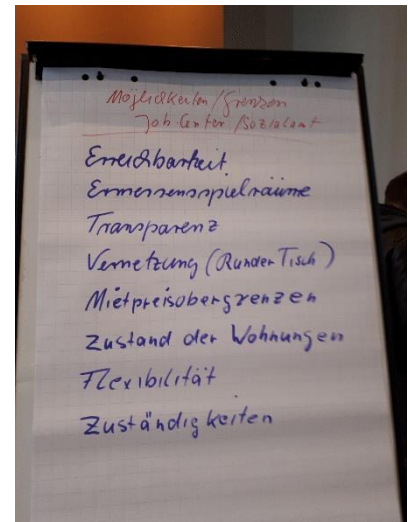 Möglichkeiten/Grenzen
Job-Center/Sozialamt
Erreichbarkeit
Ermessensspielräume
Transparenz
Vernetzung (Runder Tisch)
Mietpreisobergrenzen
Zustand der Wohnungen
Flexibilität
Zuständigkeiten